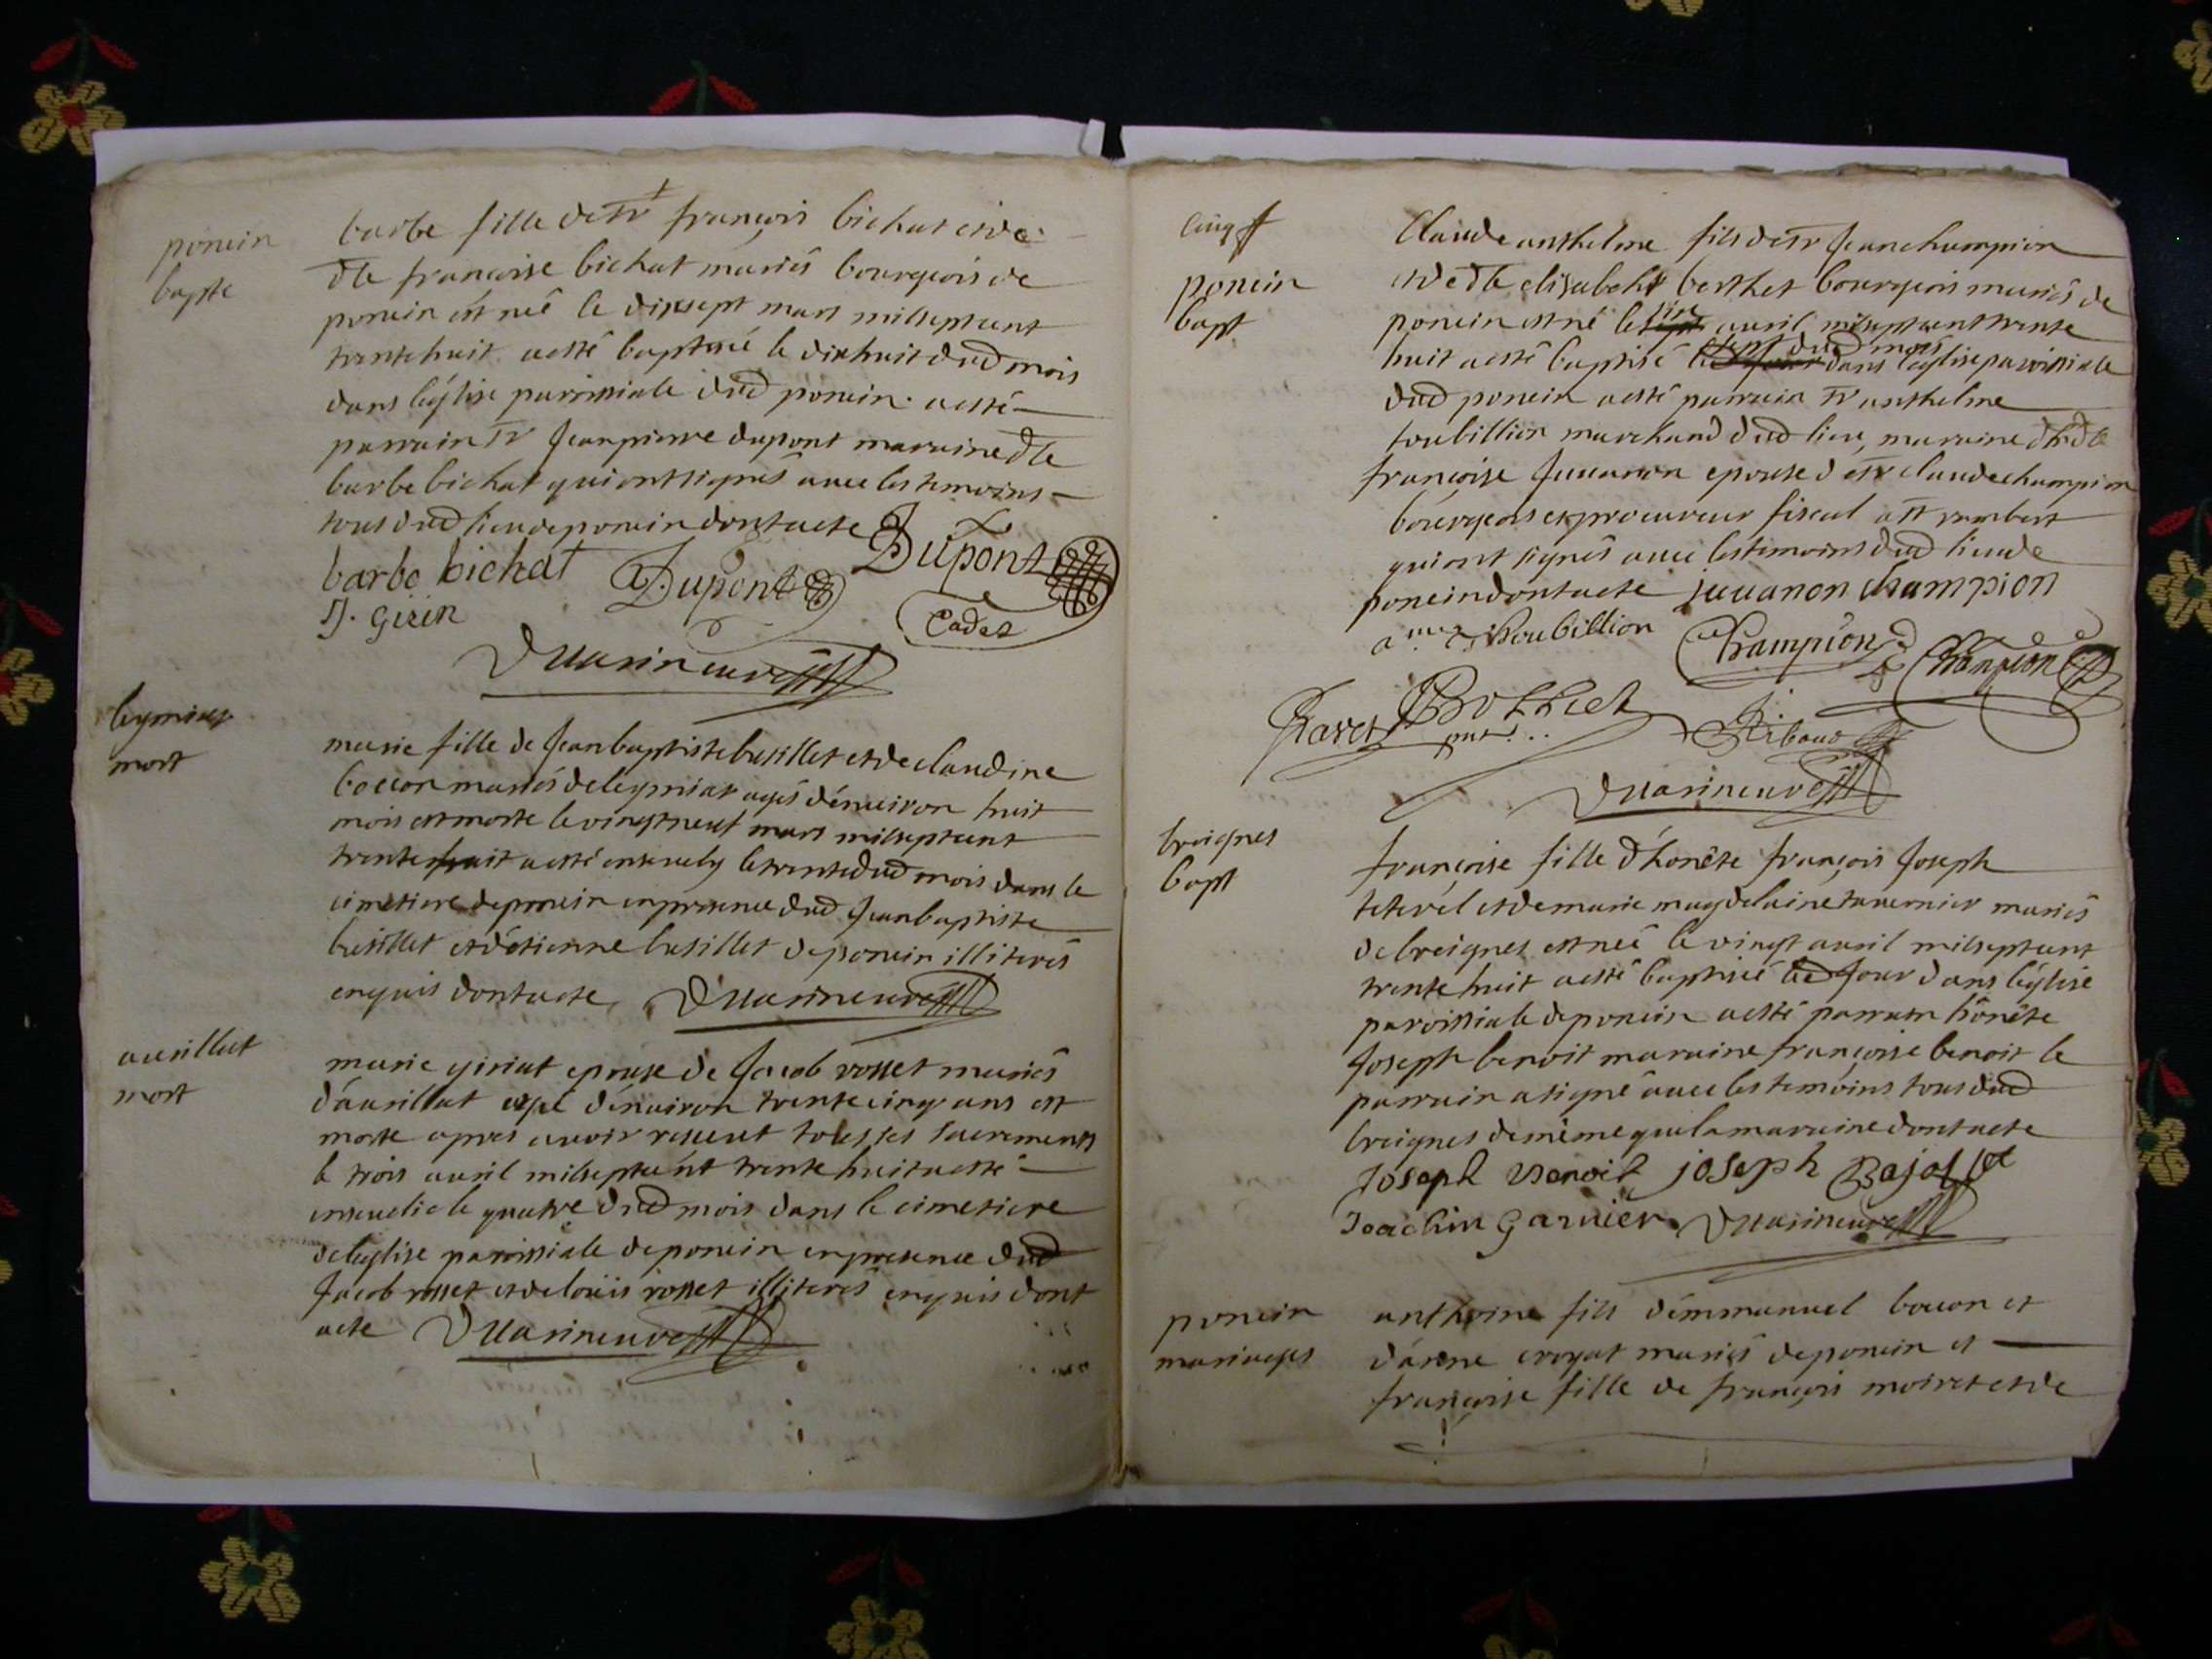 poncin
bapte
barbe fille de sr françois bichat et de
dlle françoise bichat mariés bourgeois de
poncin est néé le dixsept mars milseptcent
trentehuit aesté baptisé le dixhuit dud mois
dans léglise parroissiale dud poncin aesté
parrain sr Jeanpierre dupont maraine dlle
barbe bichat qui ont signés avec les temoins
tous dud lieu de poncin dont acte Dupont
barbe bichat Dupont
J. Girin Cadet
leymiat
mort
marie fille de Jeanbaptiste busillet et de claudine
bocon mariés de leymiat agés dénuiron huit
mois est morte le vingtneuf mars milseptcent
trentehuit aesté enseuely le trente dud mois dans le
cimetiere de poncin en presence dud Jeanbaptiste
busillet et détienne busillet de poncin illiterés
enquis dont acte
aurillat
mort
marie giriat epouse de Jacob rosset mariés
dáurillat agé dénuiron trentecinq ans est
morte apres auoir receut tous ses sacrements
le trois auril milseptcént trente huit aesté
enseuelie le quatre dud mois dans le cimetiere
de leglise parroissiale de poncin en presence dud
Jacob rosset et de loüis rosset illiterés enquis dont
acte
cinq
poncin
bapt
Claude anthelme fils de sr Jean champion
et de dlle elisabeht berthet bourgeois mariés de
poncin est né le auril milseptcent trente
huit aesté baptisé le sept dud mois dans léglise parroissiale
dud poncin aesté parrain sr anthelme
toubillion marchand dud lieu, maraine dlle
françoise Juuanon epouse de sr claude champion
bourgeois et procureur fiscal a st rambert
qui ont signés auec les temoins dud lieu de
poncin dont acte juuanon champion
toubillion Champion Champion
Ravet Bothiet Ribaud
breignes
bapt
françoise fille d'honête françois Joseph
teterél et de marie magdelaine tauernier mariés
de breignes est néé le vingt auril milseptcent
trente huit aesté baptisé led Jour dans léglise
paroissiale de poncin aesté parrain honête
Joseph benoit maraine françoise benoit le
parrain a signé auec les temoins tous dud
breignes de méme que la maraine dont acte
Joseph Benoit joseph Bajollet
Joachin Garnier
poncin
mariages
anthoine fils démmanuel bocon et
dánne croyat mariés de poncin et
françoise fille de françois moiret et de